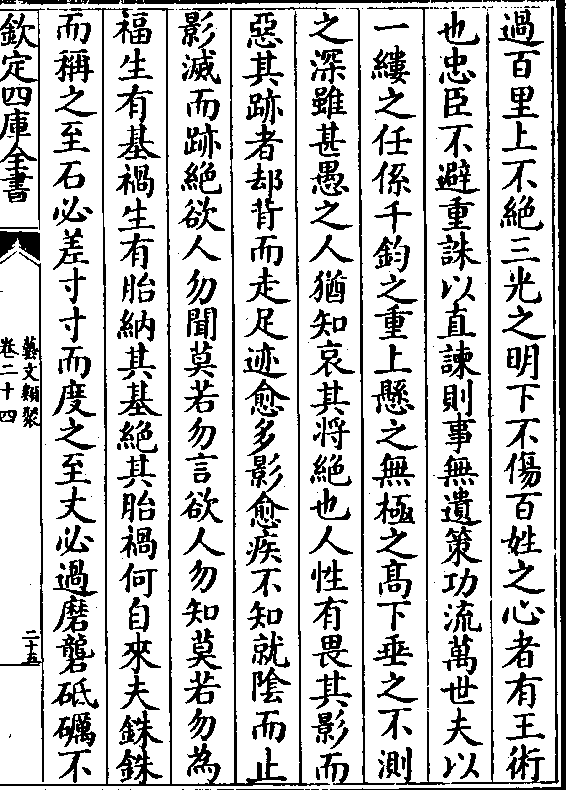 過百里上不絕三光之明下不傷百姓之心者有王術
也忠臣不避重誅以直諫則事無遺策功流萬世夫以
一縷之任係千鈞之重上懸之無極之髙下垂之不測
之深雖甚愚之人猶知哀其将絕也人性有畏其影而
惡其跡者却背而走足迹愈多影愈疾不知就陰而止
影滅而跡絕欲人勿聞莫若勿言欲人勿知莫若勿為
福生有基禍生有胎納其基絕其胎禍何自來夫銖銖
而稱之至石必差寸寸而度之至丈必過磨礲砥礪不
欽定四庫全書
藝文類聚
卷二十四
二十五